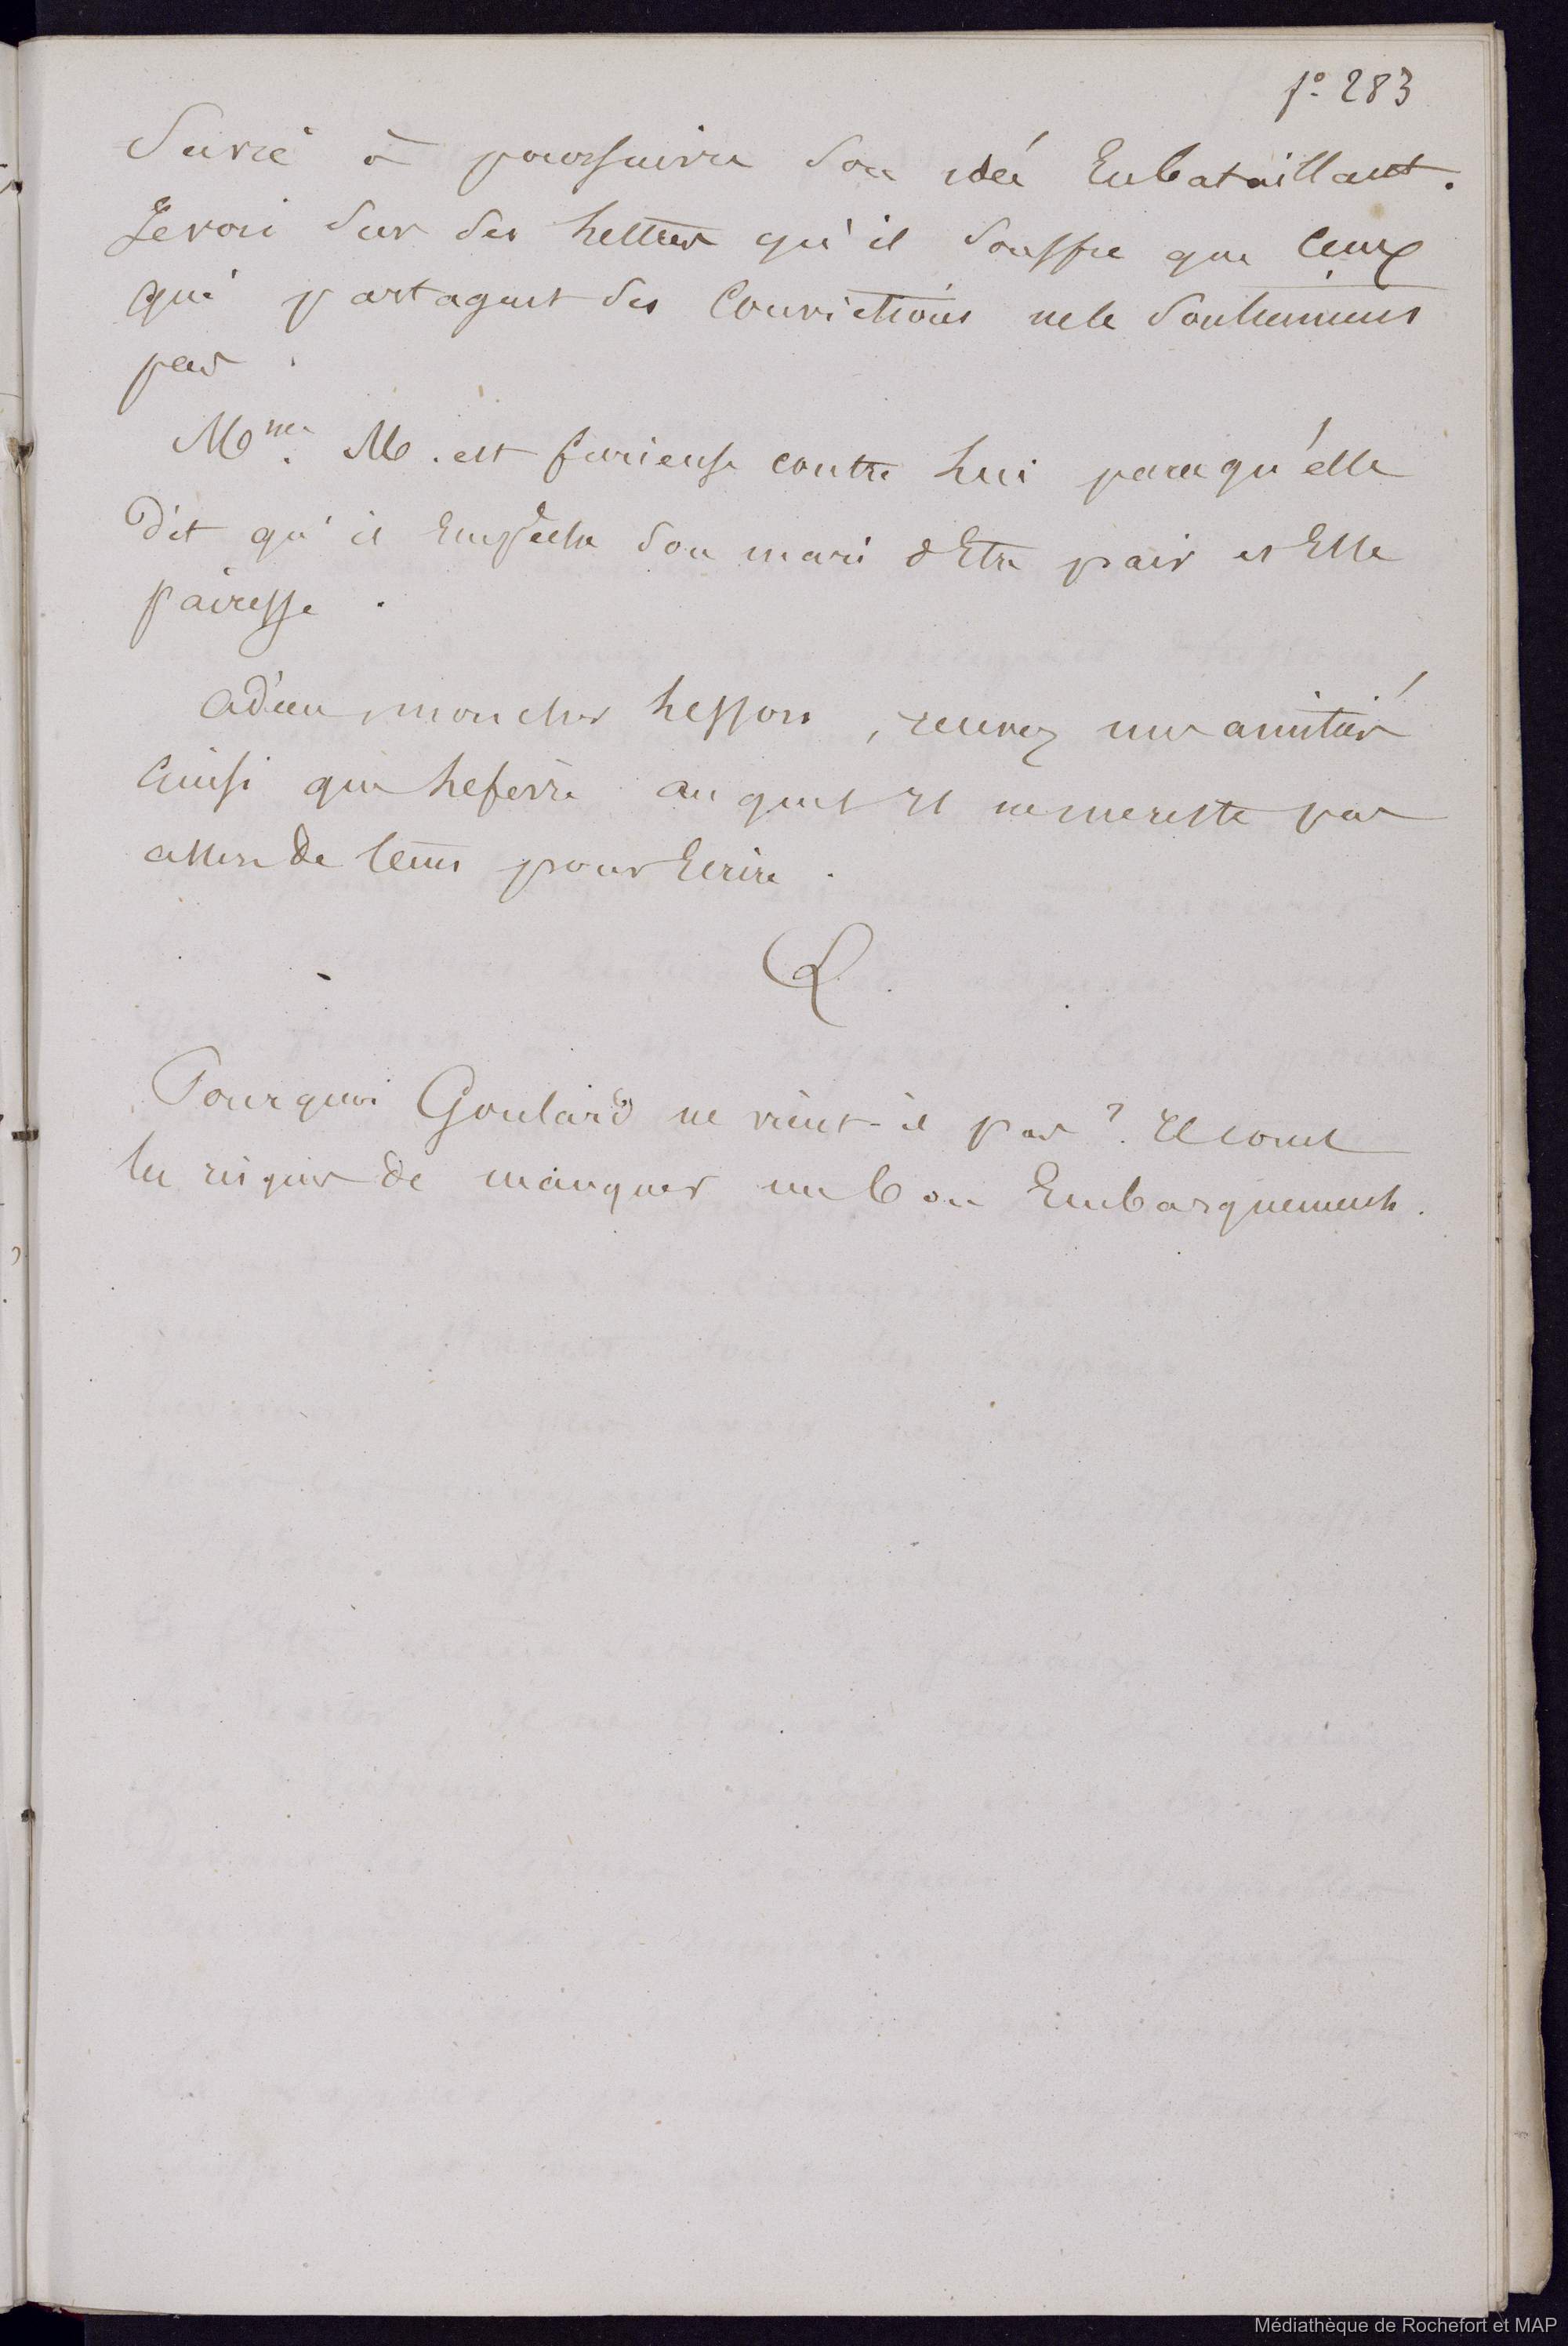 f° 283
Survie à poursuivre son idée En bataillant.
Je vois sur ses Lettres qu'il souffre que Ceux
qui partagent ses Convictions ne le soutiennent
pas.
Mme. M. est furieuse contre Lui parce qu'elle
dit qu'il Empêche son mari d'Etre pair et Elle
pairesse.
adieu, mon cher Lesson, recevez mes amitiés
ainsi que Lefèvre auquel Il ne me reste pas
assez de tems pour Ecrire.
L.
Pourquoi Goulard ne vient-il pas ? Il court
les risques de manquer un bon Embarquement.
Médiathèque de Rochefort et MAP